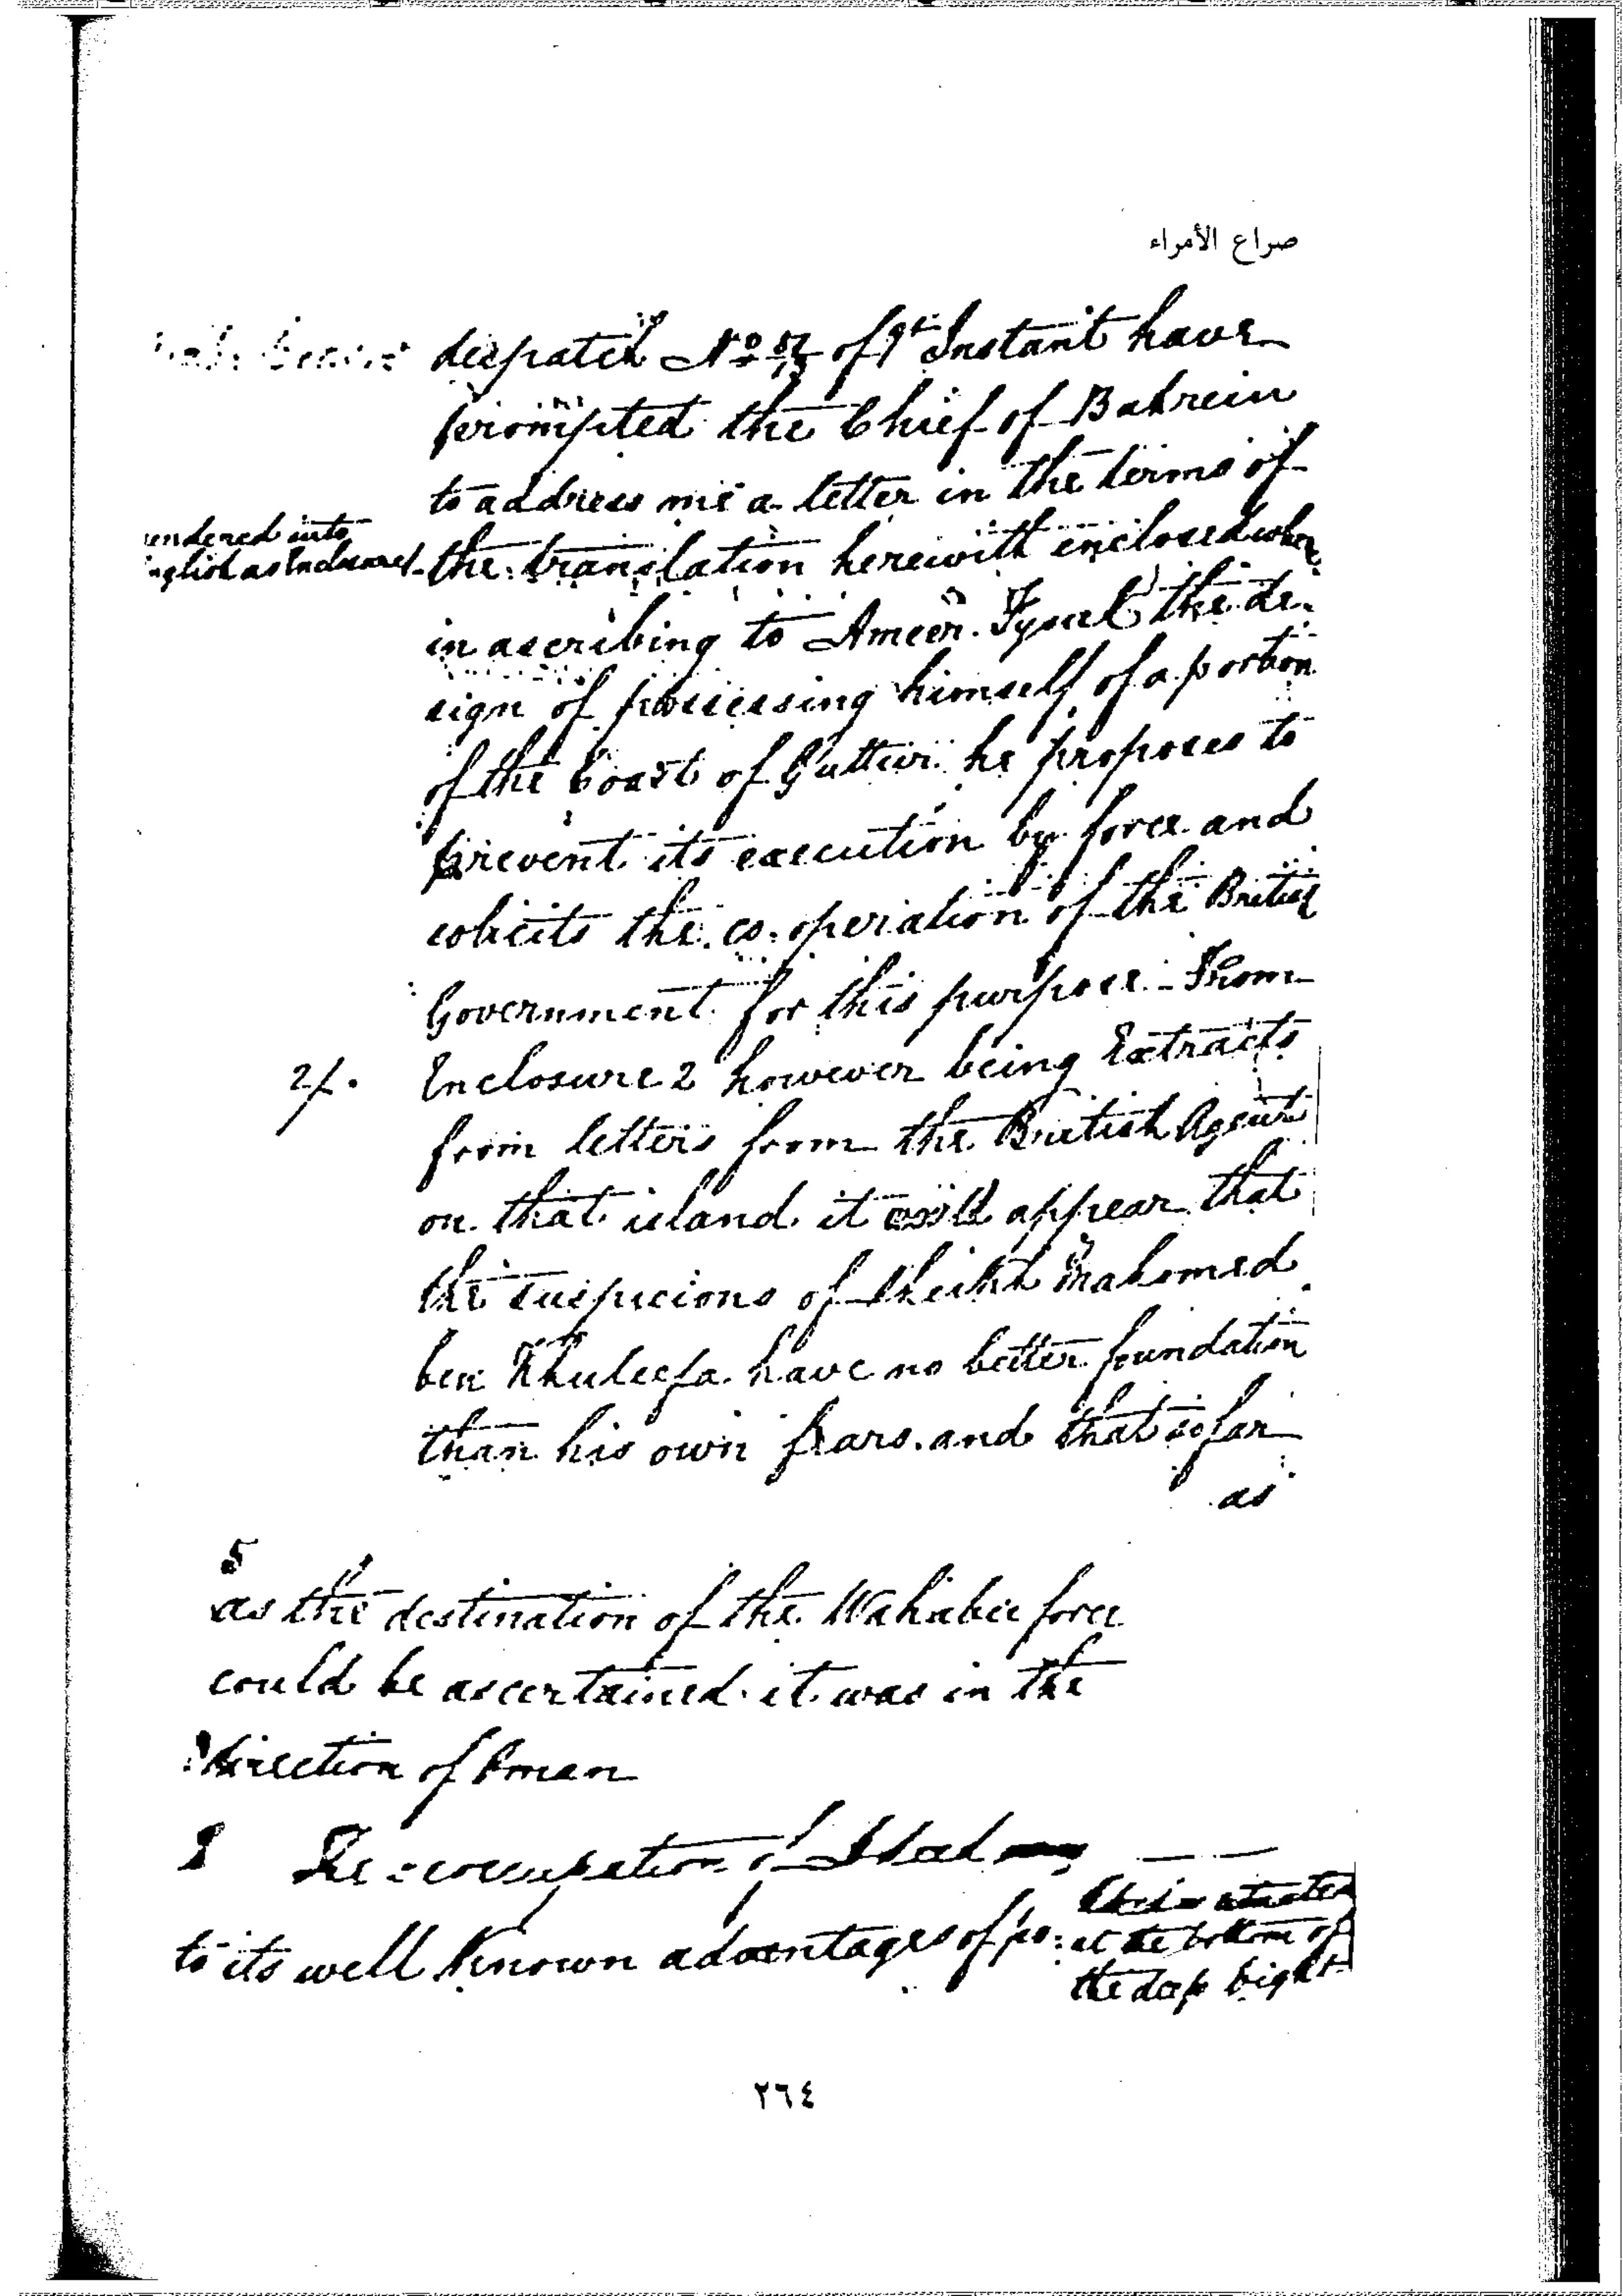 صراع الأمراء
despatch No of 9th Instant have
prompted the Chief of Bahrein
to address me a letter in the terms of
endered into
nglish as Inclosure 1.
the translation herewith enclosed when
in ascribing to Ameer Fysul the de-
sign of possessing himself of a portion
of the Coast of Guttur he proposes to
prevent its execution by force and
solicits the co-operation of the British
Government for this purpose - From
2/.
Enclosure 2 however being Extracts
from letters from the British Agent
on that island it will appear that
the suspicions of Sheikh Mahomed
ben Khuleefa have no better foundation
than his own fears and that so far
as
5
as the destination of the Wahabee force
could be ascertained it was in the
direction of Oman
The occupation of
to its well known advantages of po-
at the bottom of
the deep bight
٢٦٤